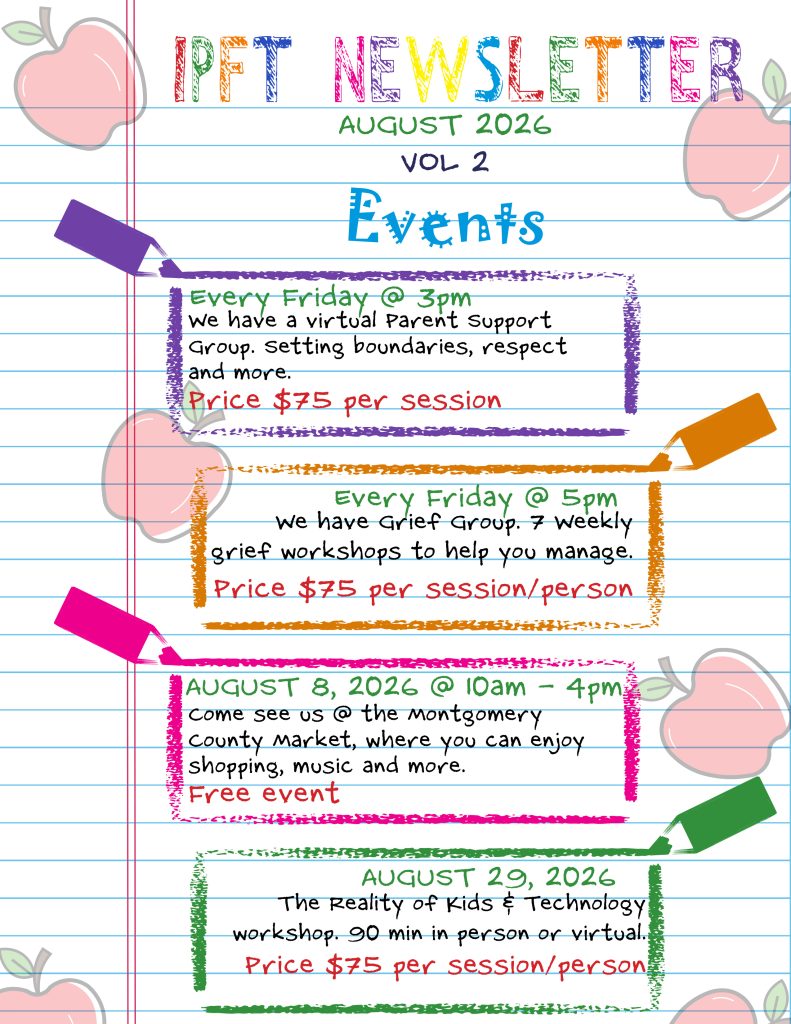 IPFT NEWSLETTER
AUGUST 2026
VOL 2
Events
Every Friday @ 3pm
We have a virtual Parent Support
Group. Setting boundaries, respect
and more.
Price $75 per session
Every Friday @ 5pm
We have Grief Group. 7 Weekly
grief workshops to help you manage.
Price $75 per session/person
AUGUST 8, 2026 @ 10am - 4pm
Come see us @ the Montgomery
County Market, where you can enjoy
shopping, music and more.
Free event
AUGUST 29, 2026
The Reality of Kids & Technology
workshop. 90 min in person or virtual.
Price $75 per session/person